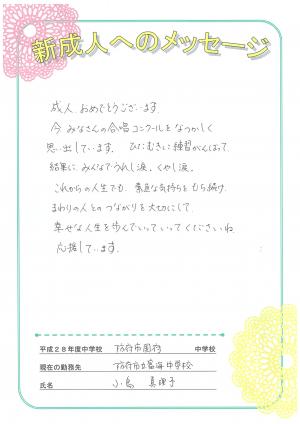 新成人へのメッセージ
成人、おめでとうございます。
今、みなさんの合唱コンクールをなつかしく
思い出しています。ひたむきに練習がんばって、
結果に、みんなでうれし涙、くやし涙。
これからの人生でも、素直な気持ちをもち続け、
まわりの人とのつながりを大切にして、
幸せな人生を歩んでいっていってくださいね。
応援しています。
平成28年度中学校 防府市国府 中学校
現在の勤務先 防府市立富海中学校
氏名 小島 真理子